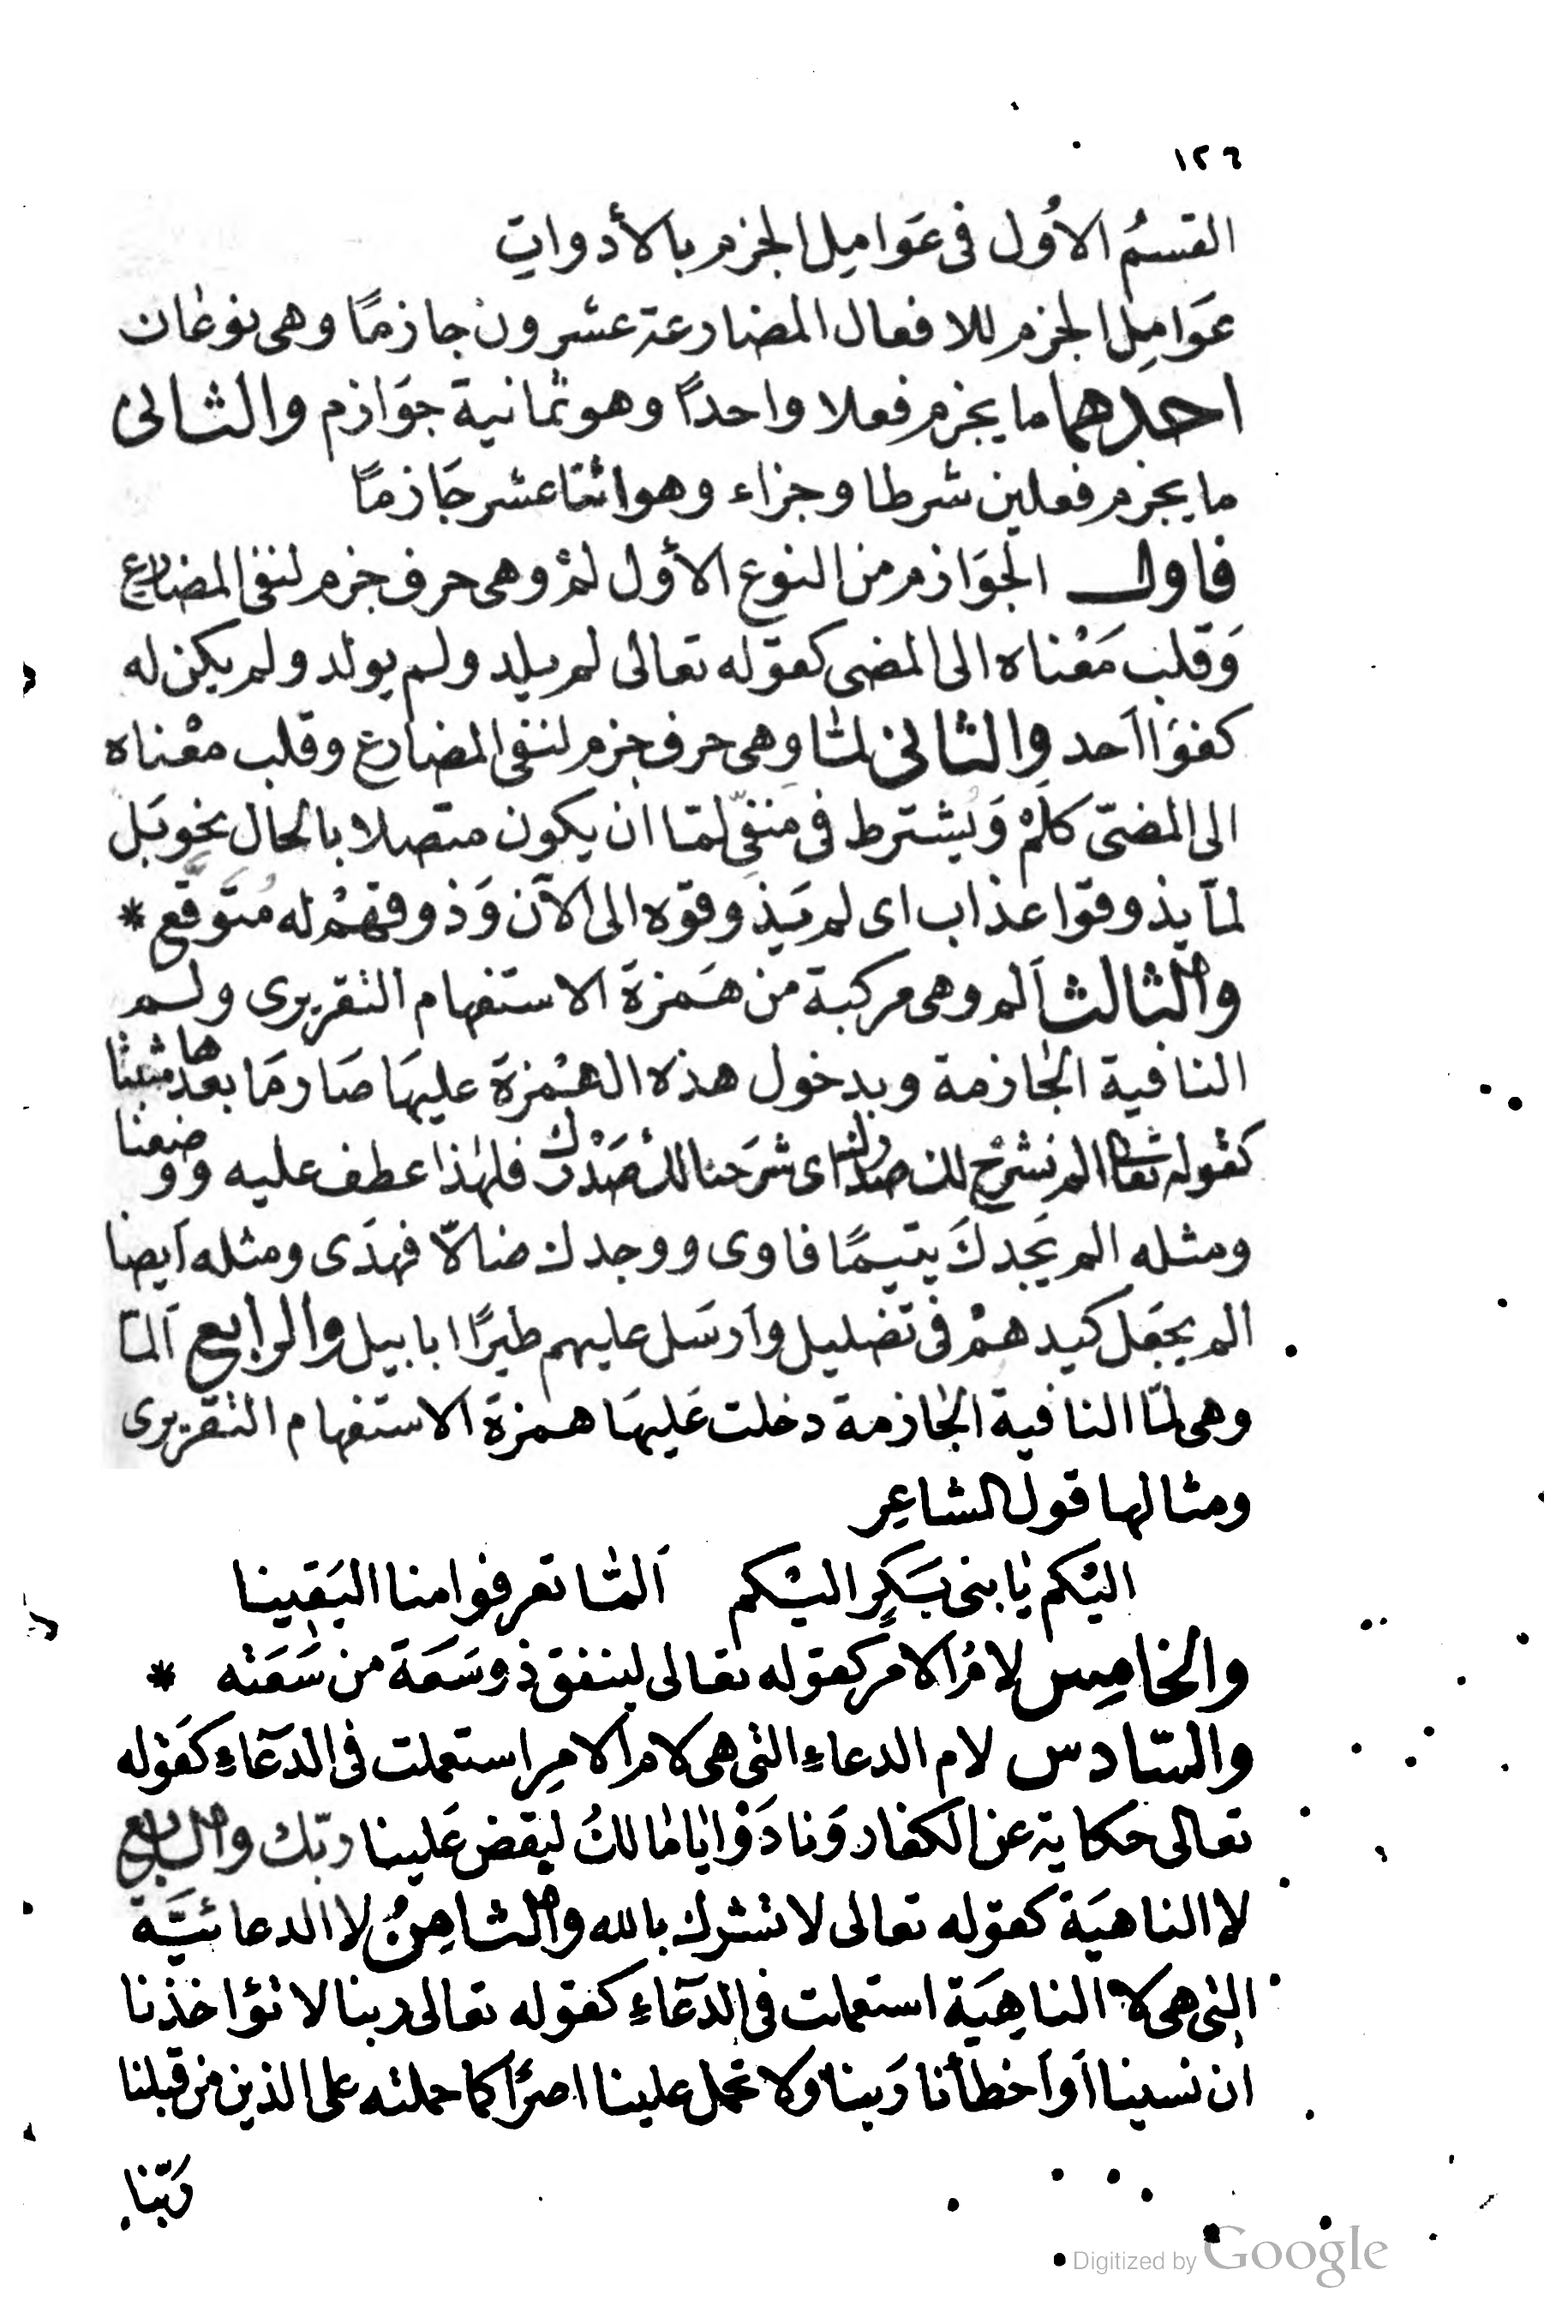 ١٢٦
القسمُ الاوُل فى عَوامِل الجزم بالأدواتِ
عَوامِل الجزم للافعال المضارعة عشرون جازمًا وهى نوعان
احدهما ما يجزم فعلا واحدًا وهو ثمانية جوَازم والثانى
ما يجزم فعلين شرطا وجزاء وهو اثنا عشر جَازمًا
فاول الجوَازم من النوع الأول لمْ وهى حرف جزم لنفى المضارع
وَقلب مَعْناه الى المضى كقوله تعالى لم يلد ولم يولد ولم يكن له
كفوًا احد والثانى لمّا وهى حرف جزم لنفى المضارع وقلب معْناه
الى المضىّ كلَمْ وَيُشترط فى مَنفىّ لمّا ان يكون متصلا بالحال نحو بَل
لمّا يذوقوا عذاب اى لم يَذوقوه الى الآن وَذوقهمْ له مُتوقّع *
والثالث اَلم وهى مركبة من هَمزة الاستفهام التقريرى ولم
النافية الجازمة وبدخول هذه الهمْزة عليهَا صَار مَا بعْدها مثبتا
كقوله تعالى الم نشرحْ لك صدرك اى شرَحنا لك صَدْرك فلهٰذا عطف عليه ووضعنا
ومثله الم يَجدكَ يتيمًا فاوى ووجدك ضالاّ فهدَى ومثله اَيضا
الم يجعَل كيدهمْ فى تضليل واَرسَل عليهم طيرًا ابابيل والرابع اَلمّا
وهى لمّا النافية الجازمة دخلت عَليهَا همزة الاستفهام التقريرى
ومثالها قول الشاعِر
اليْكم يٰا بنى بَكرٍ اليْكم اَلمّا تعرفوا منا اليَقِينا
والخامِس لامُ الامر كقوله تعالى لينفق ذو سَعَة من سَعَته *
والسّادس لام الدعاءِ التى هى لام الامرِ استعملت فى الدّعَاءِ كقَوْله
تعالى حكاية عن الكفار وَنادَوْا يٰا مٰالكُ ليقض عَلينا ربّك والسابع
لا الناهيَة كقوله تعالى لا تشرك بالله والثامِنُ لا الدعائيَّة
التى هى لا الناهِيَة استعملت فى الدّعَاءِ كقوله تعالى ربنا لا تؤاخذنا
ان نسينا اَو اَخطأنا رَبنا ولا تحمل علينا اصرًا كما حملته على الذين من قبلنا
رَبّنا
Digitized by Google